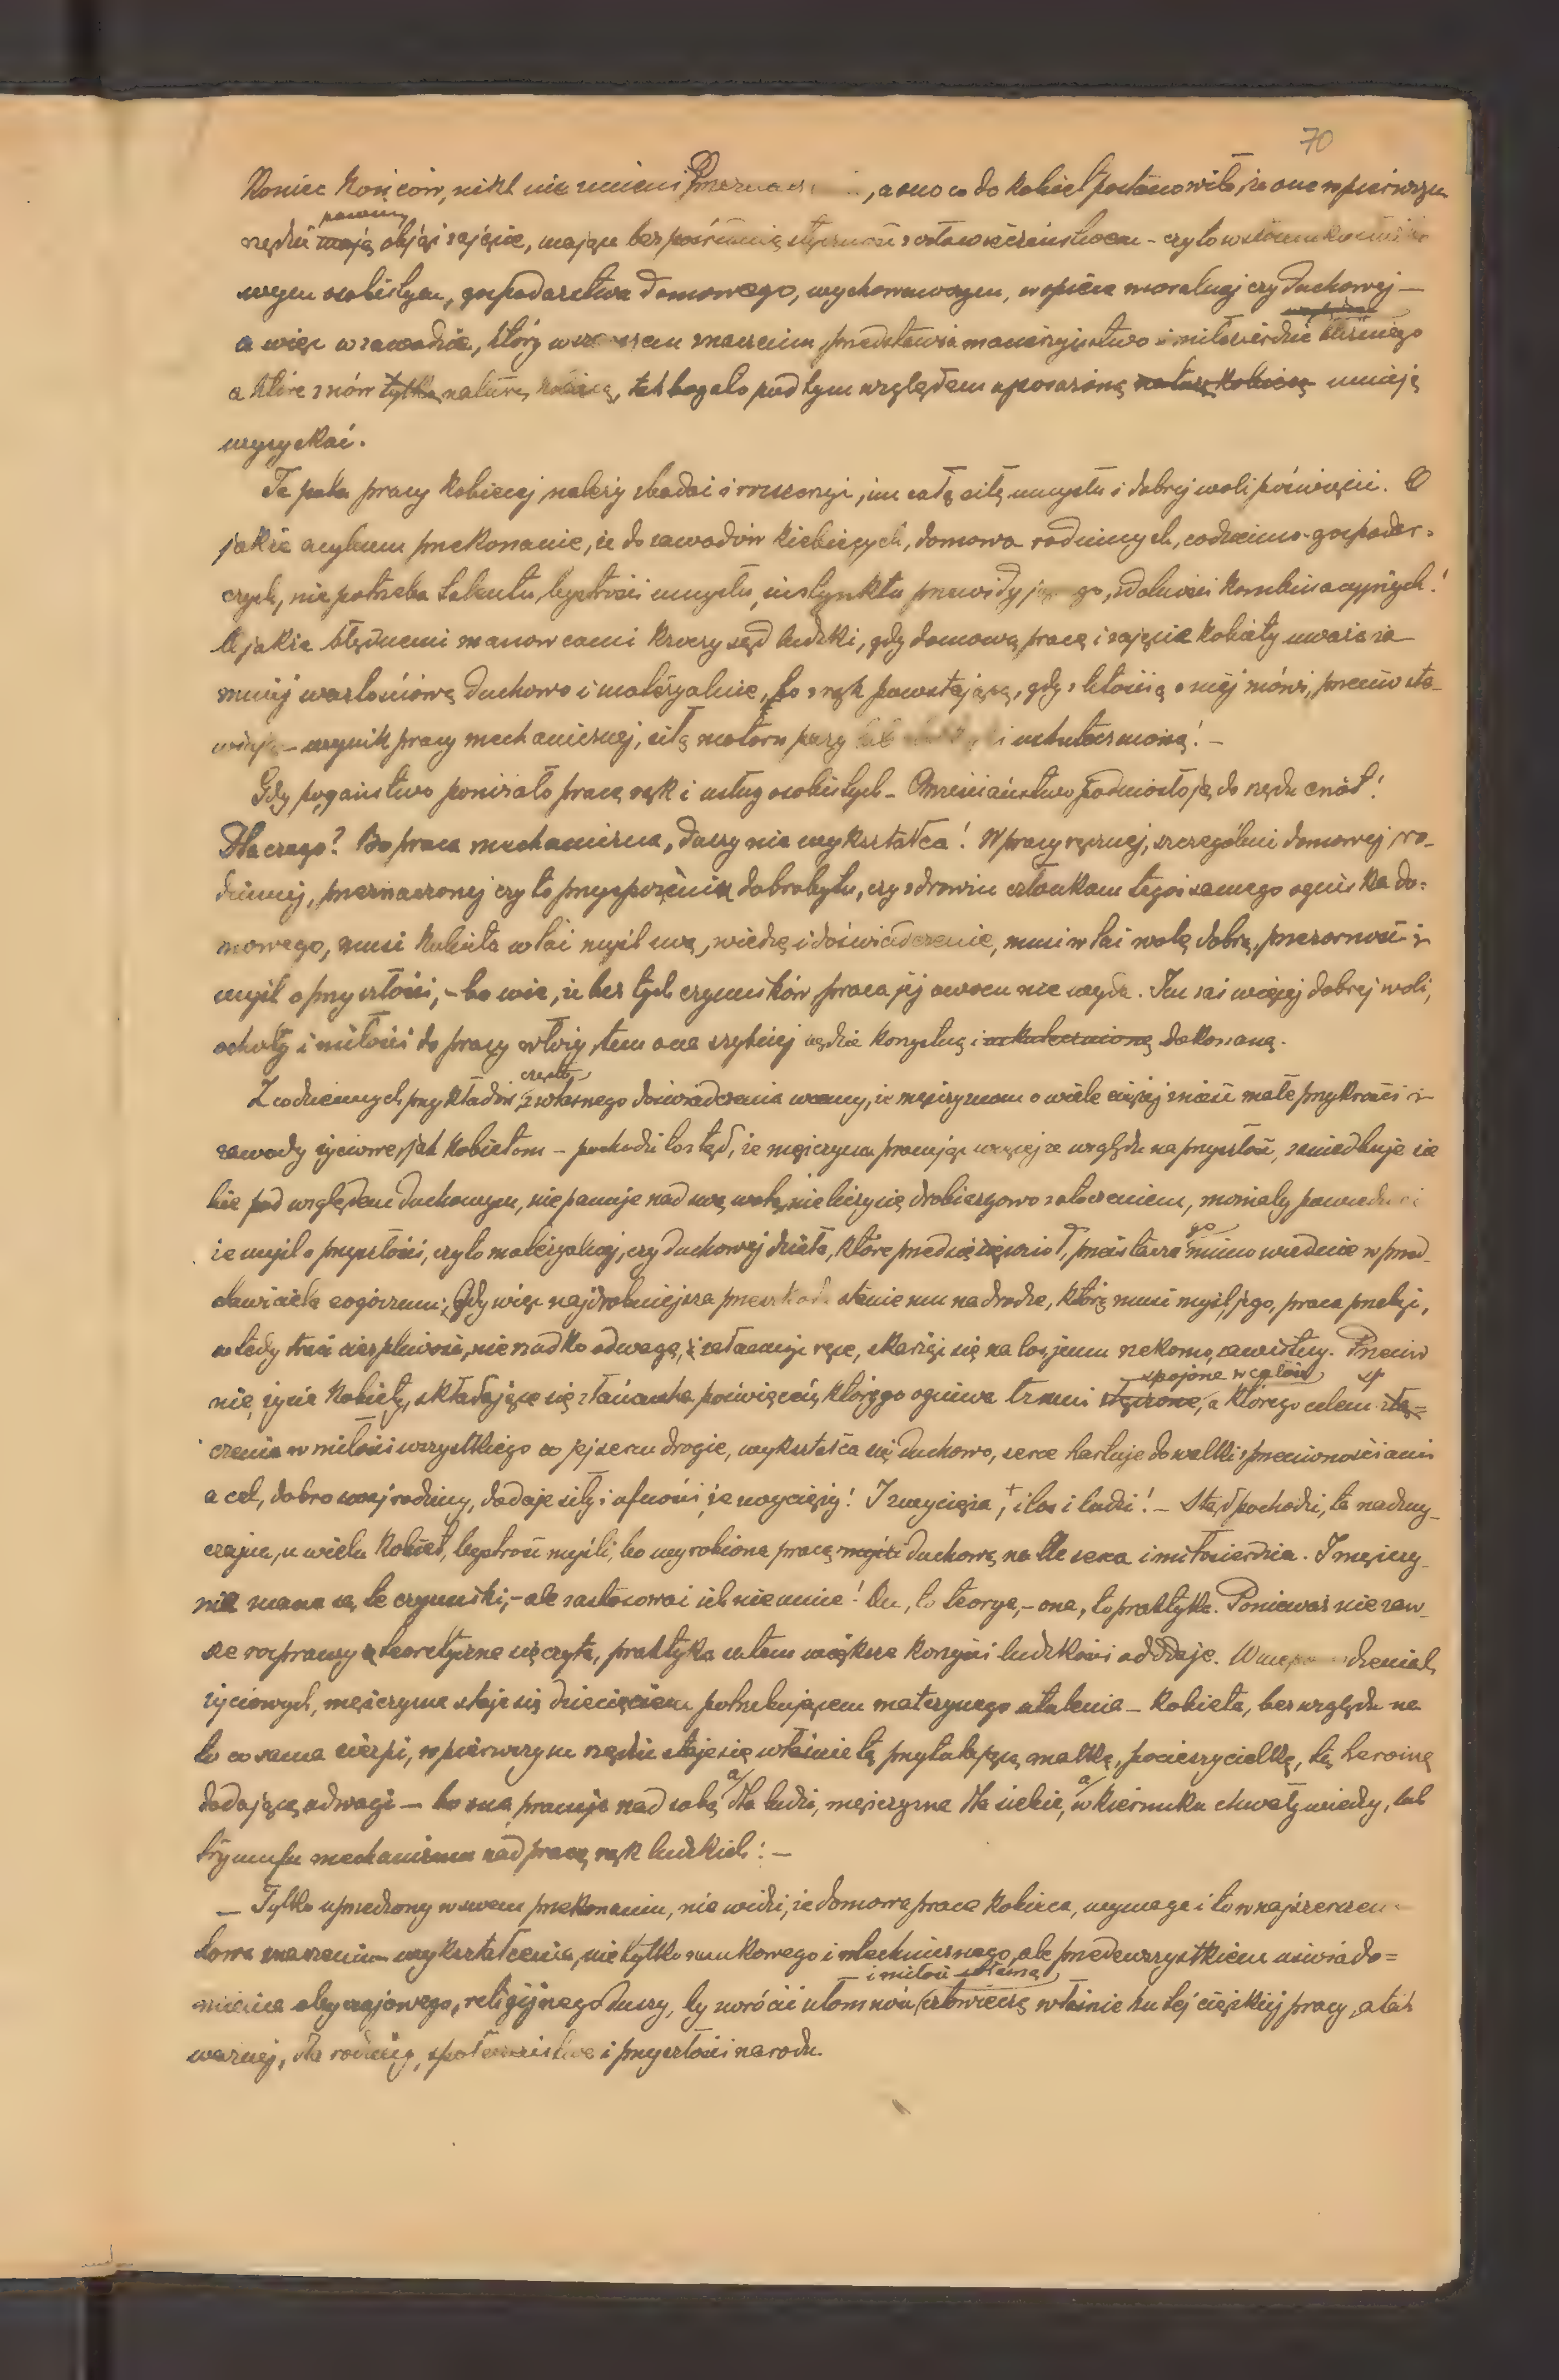 70
Koniec końców, nikt nie zmieni Przeznaczenia, a ono co do kobiet postanowiło, że one w pierwszym
powinny
rzędzie mają objąć zajęcie, mające bezpośrednią styczność z społeczeństwem - czy to w
wszem osobistym, gospodarstwa domowego, wychowawczym, w opiece moralnej czy duchowej —
a więc w zawodzie, który w szerszem znaczeniu przedstawia macierzyństwo i miłosierdzie bliźniego
a które znów tylko naturę kobiecą, tak bogato pod tym względem uposażoną naturę kobiecą umieją
wyzyskać.
Te pola pracy kobiecej należy zbadać i rozszerzyć, im całą siłę umysłu i dobrej woli poświęcić. O
jakże mylnem przekonanie, że do zawodów kobiecych, domowo-rodzinnych, codzienno-gospodar-
czych, nie potrzeba talentu, bystrości umysłu, instynktu przewidującego, zdolności kombinacyjnych!
O jakże błędnemi manowcami kroczy sąd ludzki, gdy domową pracę i zajęcie kobiety uważa za
mniej wartościową duchowo i materyalnie, bo z rąk powstającą, gdy z litością o niej mówi, przeciwsta-
wiając - wynik pracy mechanicznej, siłą motoru pary lub i uskutecznioną! —
Gdy pogaństwo poniżało pracę rąk i usług osobistych - Chrześciaństwo podniosło ją do rzędu cnót!
Dlaczego? Bo praca mechaniczna, duszy nie wykształca! W pracy ręcznej, szczególnie domowej, ro-
dzinnej, przeznaczonej czy to przysporzeniu dobrobytu, czy zdrowiu członkom tegoż samego ogniska do-
mowego, musi kobieta wlać myśl swą, wiedzę i doświadczenie, musi wlać wolę dobrą, przezorność i
myśl o przyszłości, - bo wie, że bez tych czynników praca jej owocu nie wyda. Im zaś więcej dobrej woli,
ochoty i miłości do pracy włoży, tem ona szybciej będzie korzystną i uskutecznioną dokonaną.
często
Z codziennych przykładów, z własnego doświadczenia wiemy, że mężczyznom o wiele ciężej znieść małe przykrości i
zawody życiowe, jak kobietom - pochodzi to stąd, że mężczyzna pracując więcej ze względu na przyszłość, zaniedbuje sie
bie pod względem duchowym, nie panuje nad swą wolą, nie liczy się drobiazgowo z otoczeniem, mniemały powiedzieć
go
że myśl o przyszłości, czy to materyalnej, czy duchowej dzieła, które przedsięwziął, przeistacza mimo wiednie w przed-
stawiciela egoizmu; Gdy więc najdrobniejsza przeszkoda stanie mu na drodze, którą musi myśl jego, praca przebyć,
wtedy traci cierpliwość, nierzadko odwagę, i załamuje ręce, skarżąc się na los jemu niekomu zawistny. Przeciw
spojone w całość sp
nie, życie kobiety, składające się z łańcucha poświęceń, którego ogniwa trudni złączone, a którego celem złą-
czenie w miłości wszystkiego co jej sercu drogie, wykształca się duchowo, serce hartuje do walki z przeciwnościami
a cel, dobro swej rodziny, dodaje siły i ufności, że zwycięży! I zwycięża, i los i ludzi! — Stąd pochodzi, ta nadzwy-
czajna, u wielu kobiet, bystrość myśli, bo wyrobiona pracą myśli duchową na tle serca i miłosierdzia. I mężczy-
nie znane są te czynniki, - ale zastosować ich nie umie! On, to teorya, - ona, to praktyka. Ponieważ nie zaw-
sze rozprawy teoretyczne się czyta, praktyka zatem większe korzyści ludzkości oddaje. W niepowodzeniach
życiowych, mężczyzna staje się dziecięciem potrzebującem matczynego utulenia - kobieta, bez względu na
to co sama cierpi, w pierwszym rzędzie staje się właśnie tą przytulającą matką, pocieszycielką, tą heroiną
a a
dodającą odwagi — bo ona pracuje nad sobą dla ludzi, mężczyzna dla siebie, w kierunku chwały wiedzy, lub
tryumfu mechanizmu nad pracą rąk ludzkich: —
— Tylko uprzedzony w swem przekonaniu, nie widzi, że domowa praca kobieca, wymaga i to w najszerszem
słowa znaczeniu wykształcenia, nie tylko naukowego i technicznego, ale przedewszystkiem uświado-
i miłość własną
mienia obyczajowego, religijnego duszy, by zwrócić ułomność człowieczą właśnie ku tej ciężkiej pracy, a tak
ważnej, dla rodziny, społeczeństwa i przyszłości narodu.